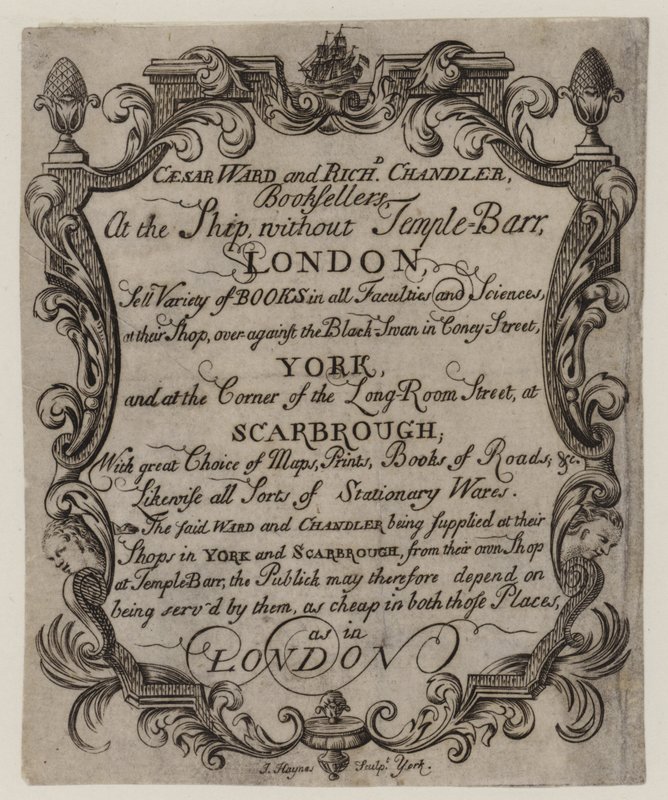 CÆSAR WARD and RICH.D CHANDLER,
Bookſellers,
At the Ship, without Temple-Barr,
LONDON,
Sell Variety of BOOKS in all Faculties and Sciences,
at their Shop, over-againſt the Black-Swan in Coney-Street,
YORK,
and at the Corner of the Long-Room Street, at
SCARBROUGH;
With great Choice of Maps, Prints, Books of Roads; &c.
Likewiſe all Sorts of Stationary Wares.
☞ The ſaid WARD and CHANDLER being ſupplied at their
Shops in YORK and SCARBROUGH, from their own Shop
at Temple-Barr, the Publick may therefore depend on
being serv'd by them, as cheap in both thoſe Places,
as in
LONDON
J. Haynes Sculp.t York.